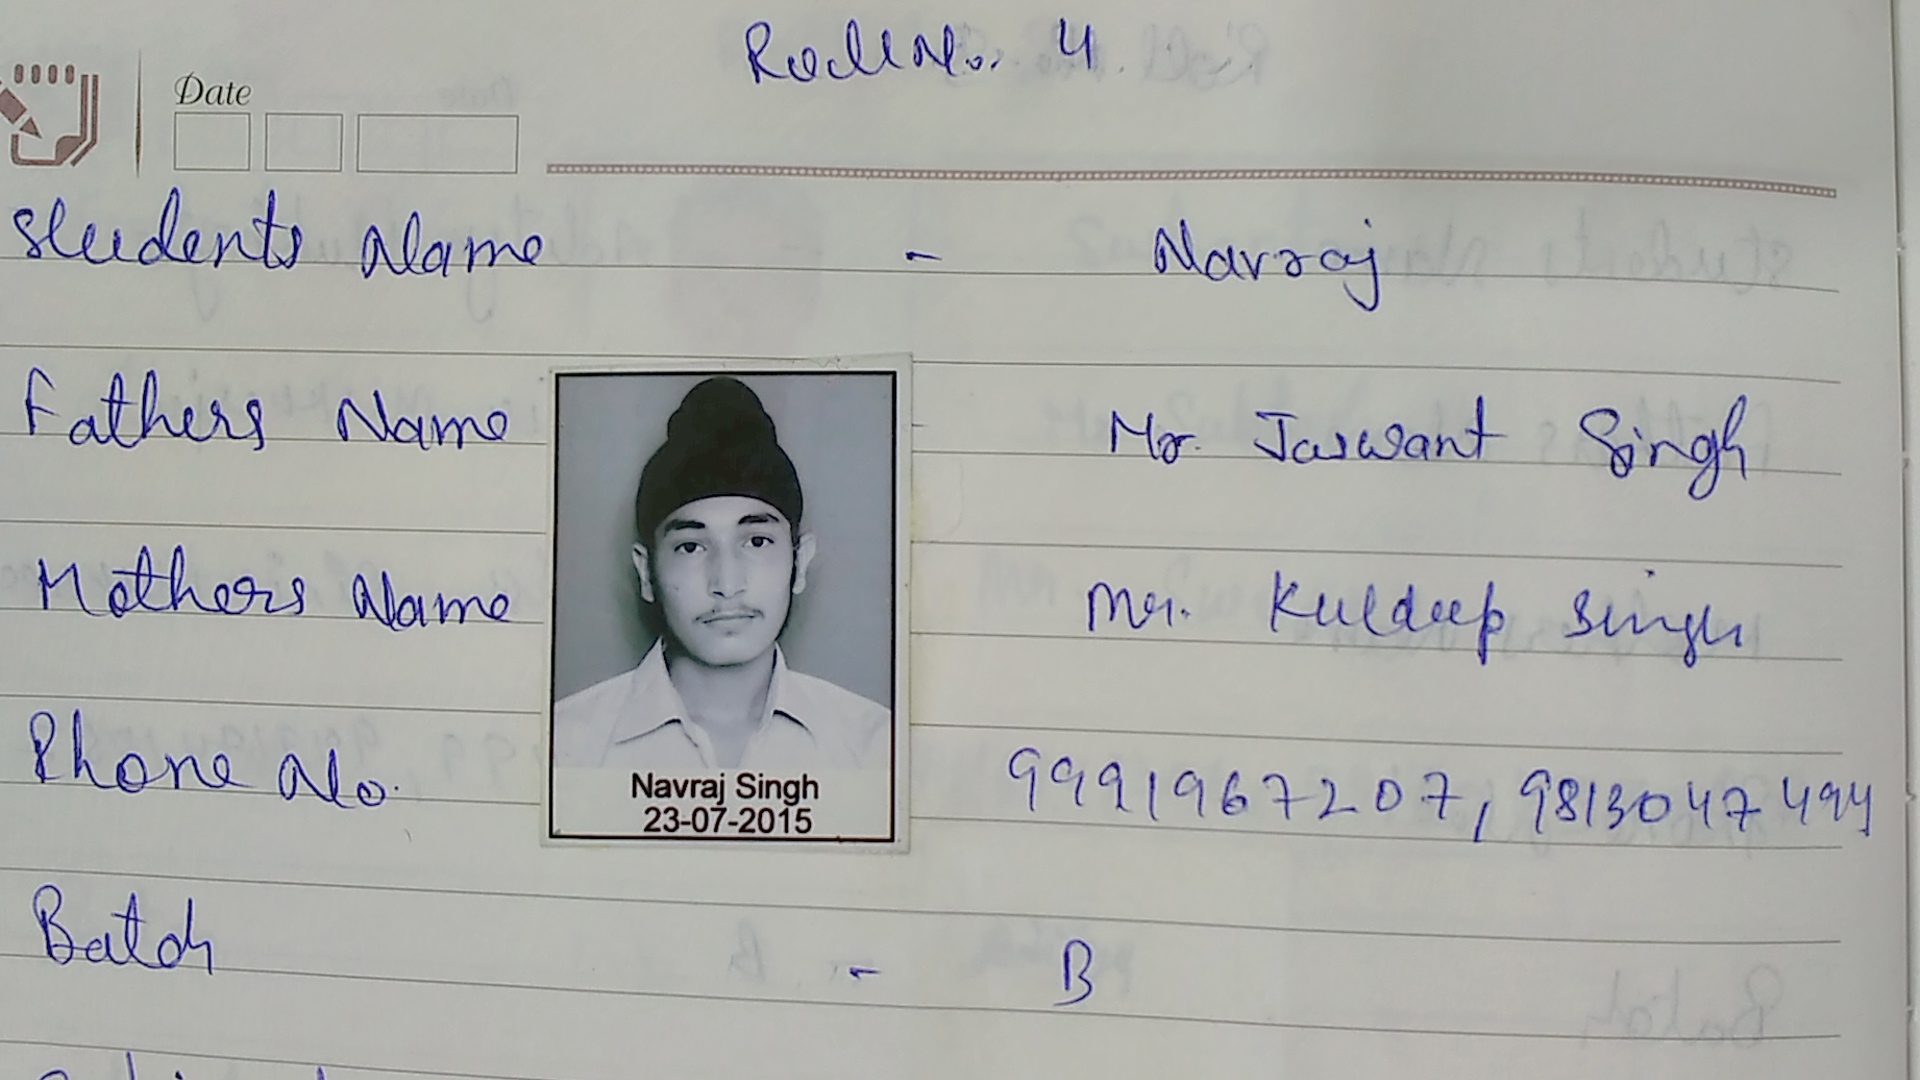 Roll No. 4
Date
Students Name - Navraj
Fathers Name Mr. Jaswant Singh
Mothers Name Mr. Kuldeep Singh
Phone No. 9991967207, 9813047494
Navraj Singh
23-07-2015
Batch - B